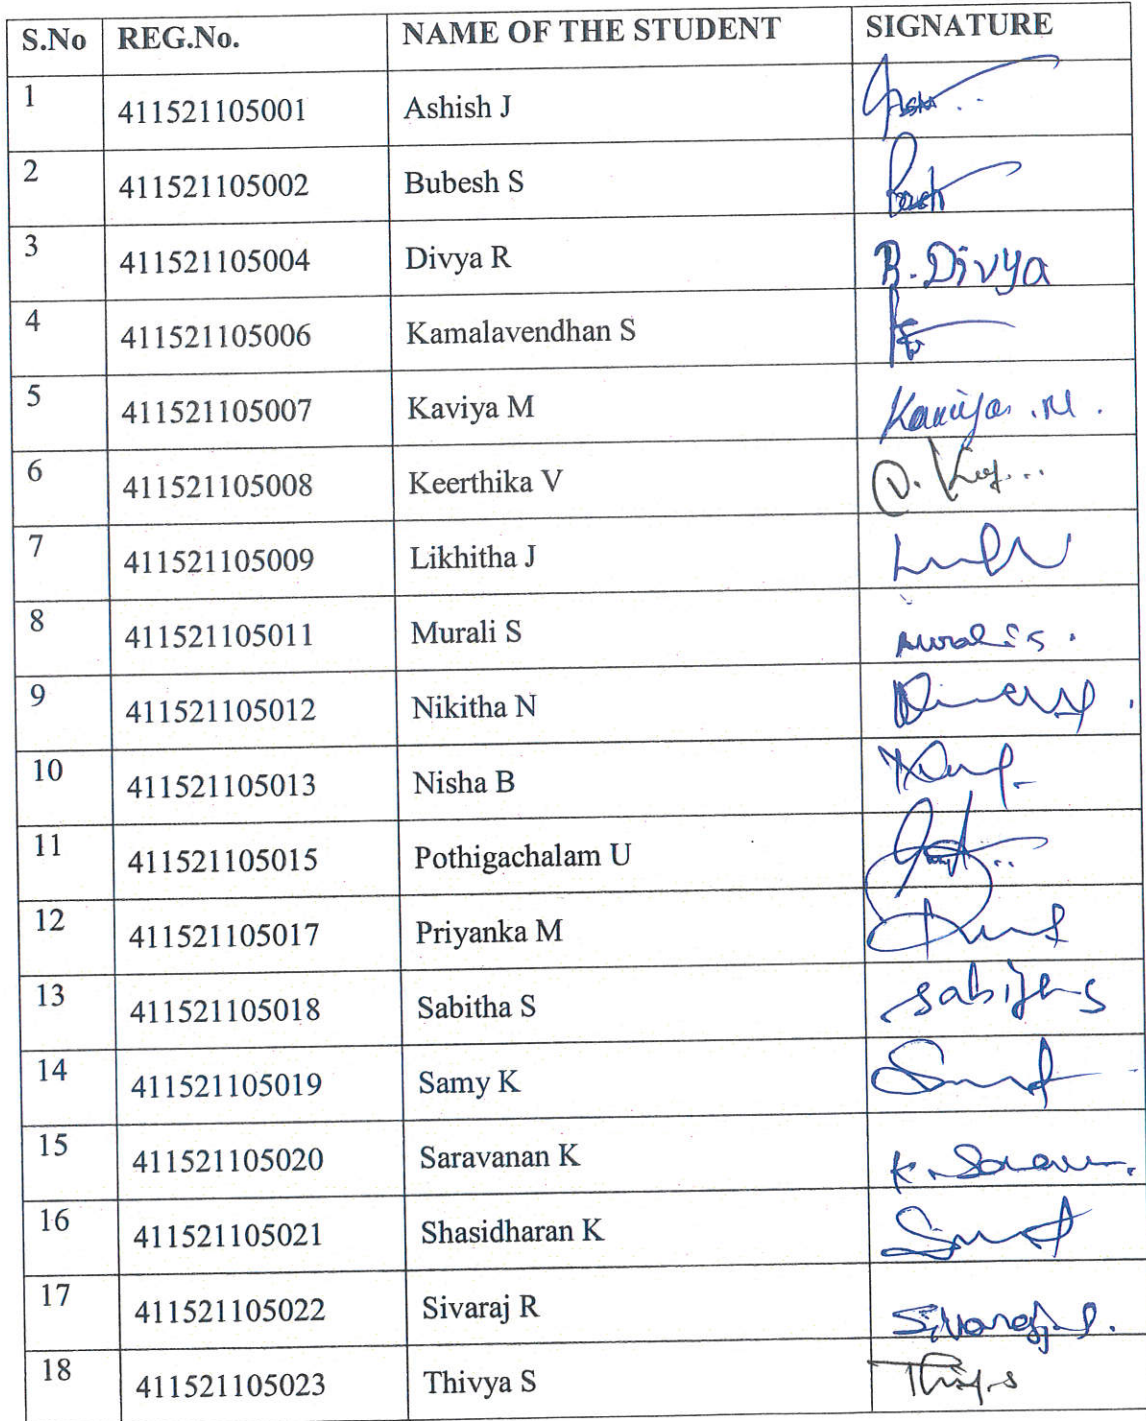 S.No REG.No. NAME OF THE STUDENT SIGNATURE
1 411521105001 Ashish J
2 411521105002 Bubesh S
3 411521105004 Divya R R. Divya
4 411521105006 Kamalavendhan S
5 411521105007 Kaviya M Kaviya .M .
6 411521105008 Keerthika V
7 411521105009 Likhitha J
8 411521105011 Murali S Murali S .
9 411521105012 Nikitha N
10 411521105013 Nisha B
11 411521105015 Pothigachalam U
12 411521105017 Priyanka M
13 411521105018 Sabitha S
14 411521105019 Samy K
15 411521105020 Saravanan K
16 411521105021 Shasidharan K
17 411521105022 Sivaraj R
18 411521105023 Thivya S